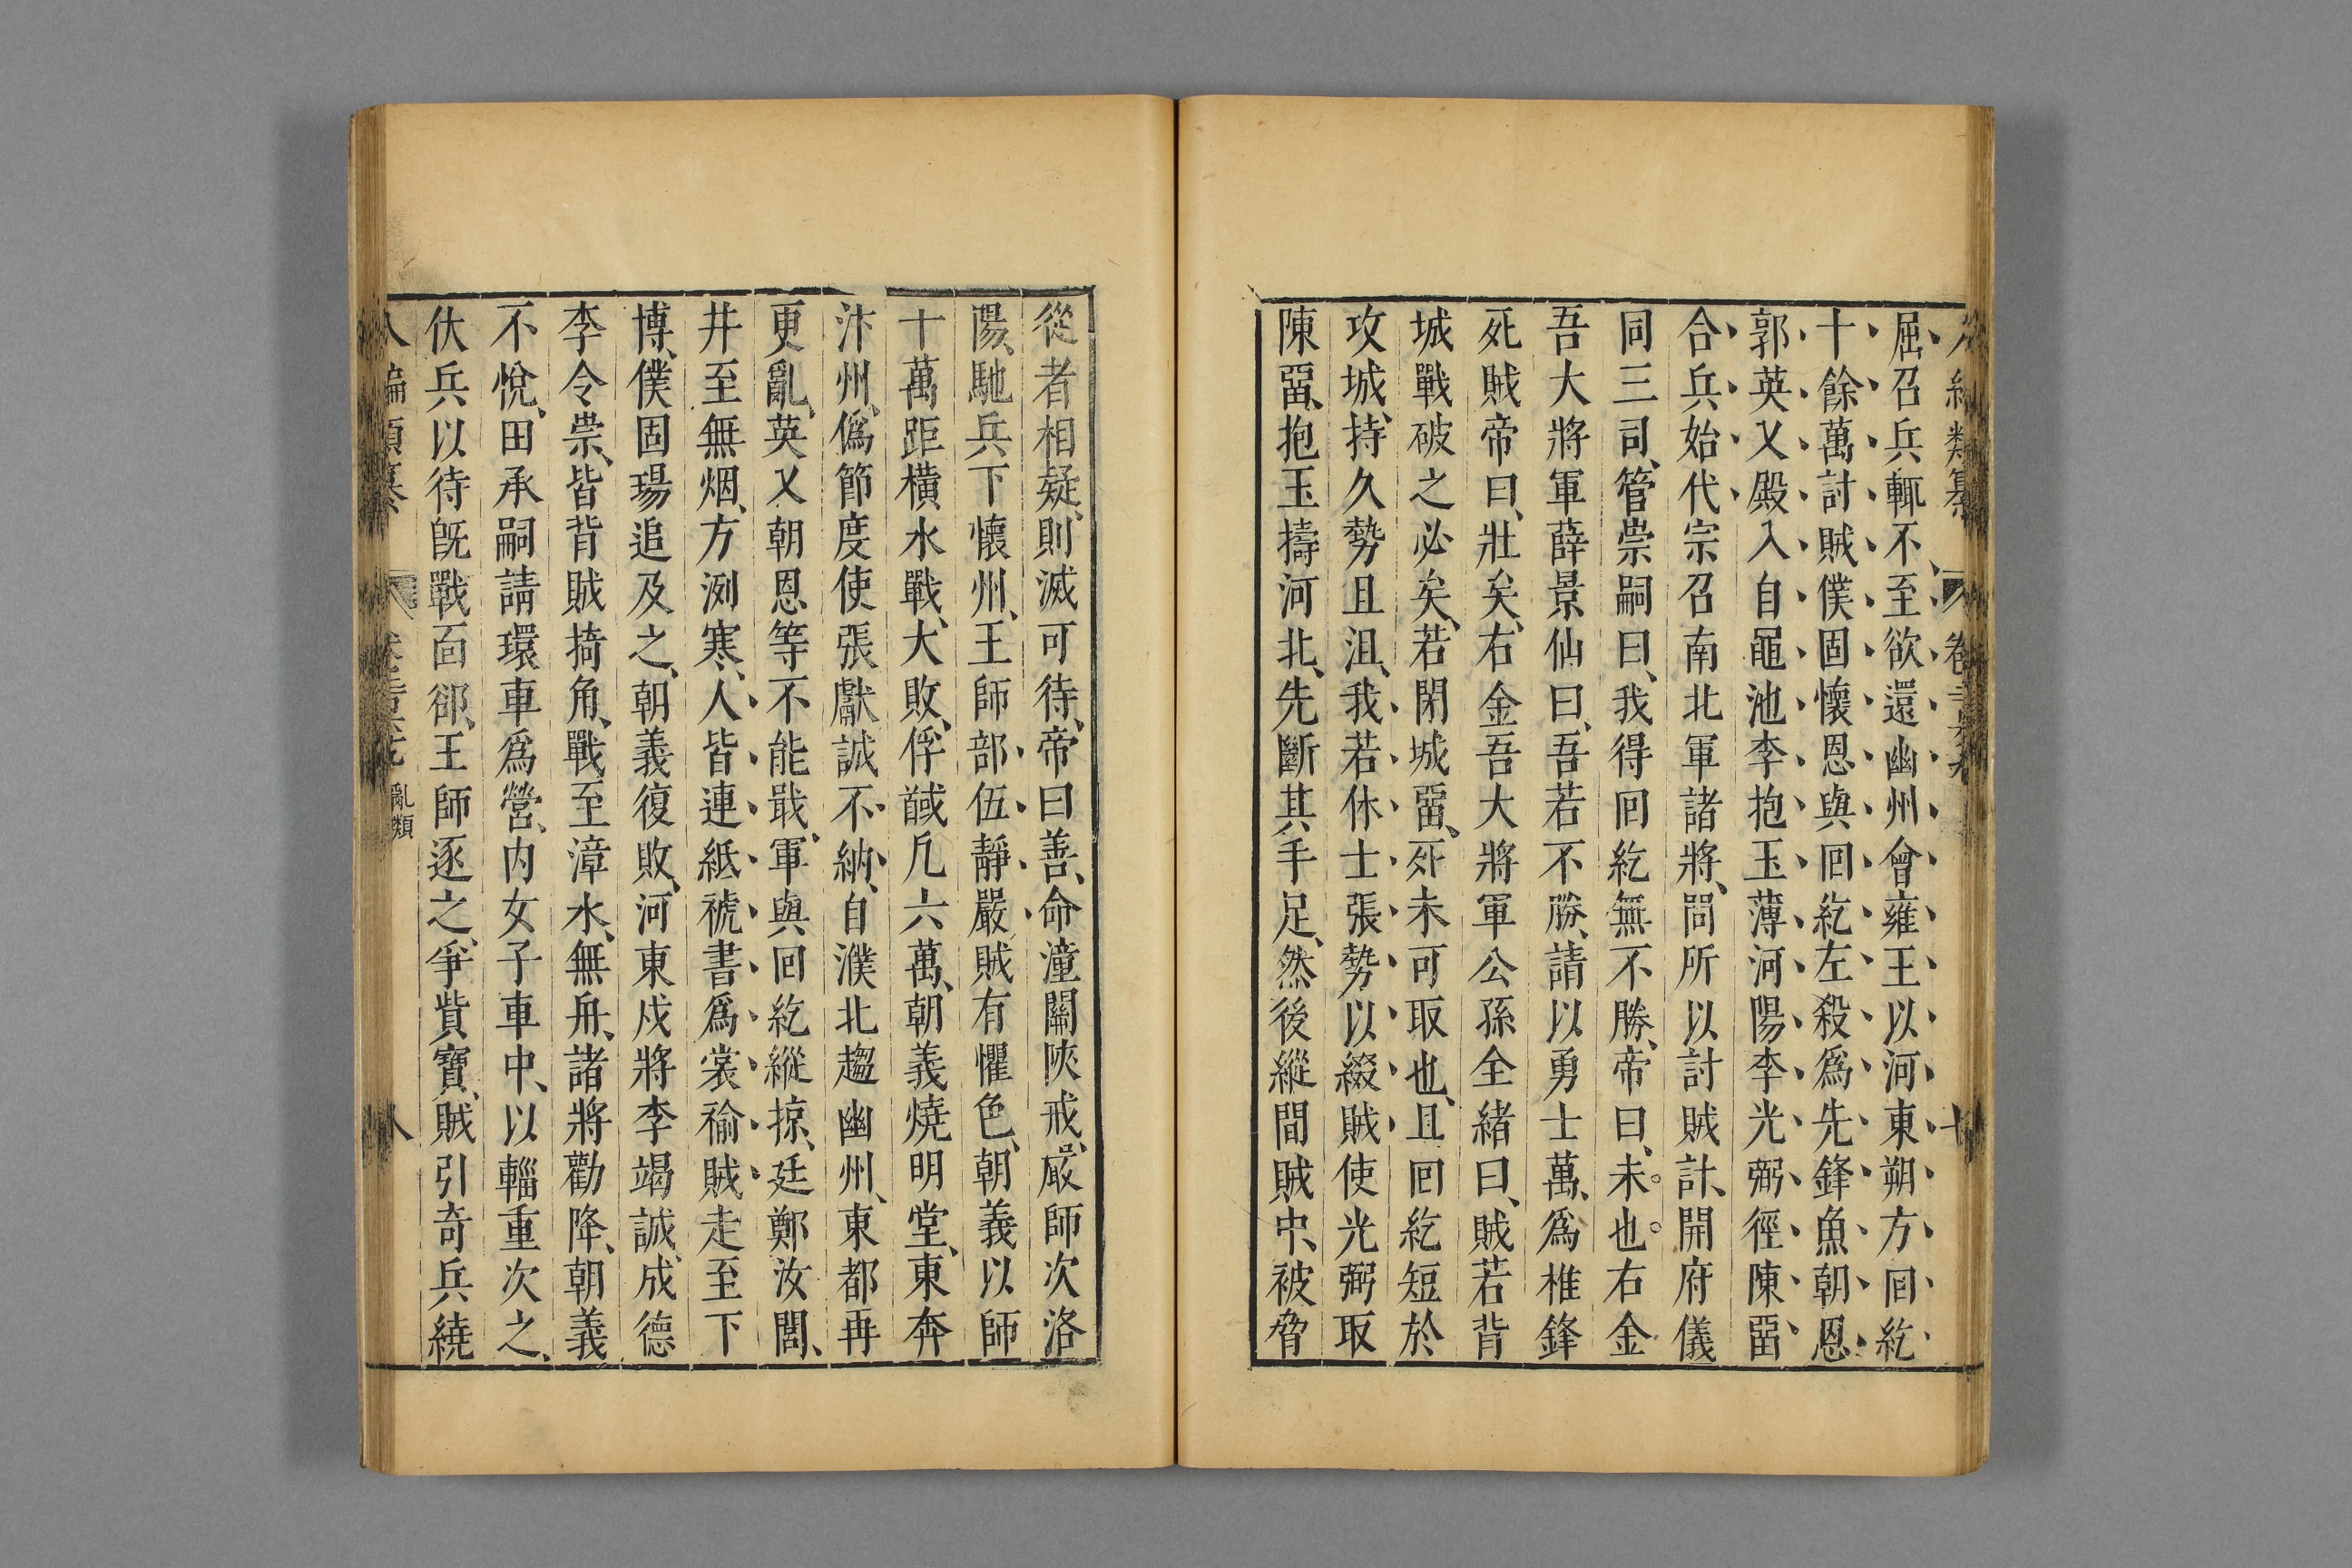 屈召兵輒不至欲還幽州會雍王以河東朔方回紇
十餘萬討賊僕固懷恩與回紇左殺爲先鋒魚朝恩
郭英乂殿入自黽池李抱玉薄河陽李光弼徑陳畱
合兵始代宗召南北軍諸將問所以討賊計開府儀
同三司管崇嗣曰我得回紇無不勝帝曰未也右金
吾大將軍薛景仙曰吾若不勝請以勇士萬爲椎鋒
死賊帝曰壯矣右金吾大將軍公孫全緒曰賊若背
城戰破之必矣若閉城畱死未可取也且回紇短於
攻城持久勢且沮我若休士張勢以綴賊使光弼取
陳畱抱玉擣河北先斷其手足然後縱間賊中被脅
從者相疑則滅可待帝曰善命潼關陝戒嚴師次洛
陽馳兵下懷州王師部伍靜嚴賊有懼色朝義以師
十萬距橫水戰大敗俘馘凡六萬朝義燒明堂東奔
汴州僞節度使張獻誠不納自濮北趨幽州東都再
更亂英乂朝恩等不能戢軍與回紇縱掠廷鄭汝閭
井至無烟方洌寒人皆連紙褫書爲裳褕賊走至下
博僕固瑒追及之朝義復敗河東戍將李竭誠成德
李令崇皆背賊掎角戰至漳水無舟諸將勸降朝義
不悅田承嗣請環車爲營內女子車中以輜重次之
伏兵以待旣戰面郤王師逐之爭貲寶賊引奇兵繞
亂類